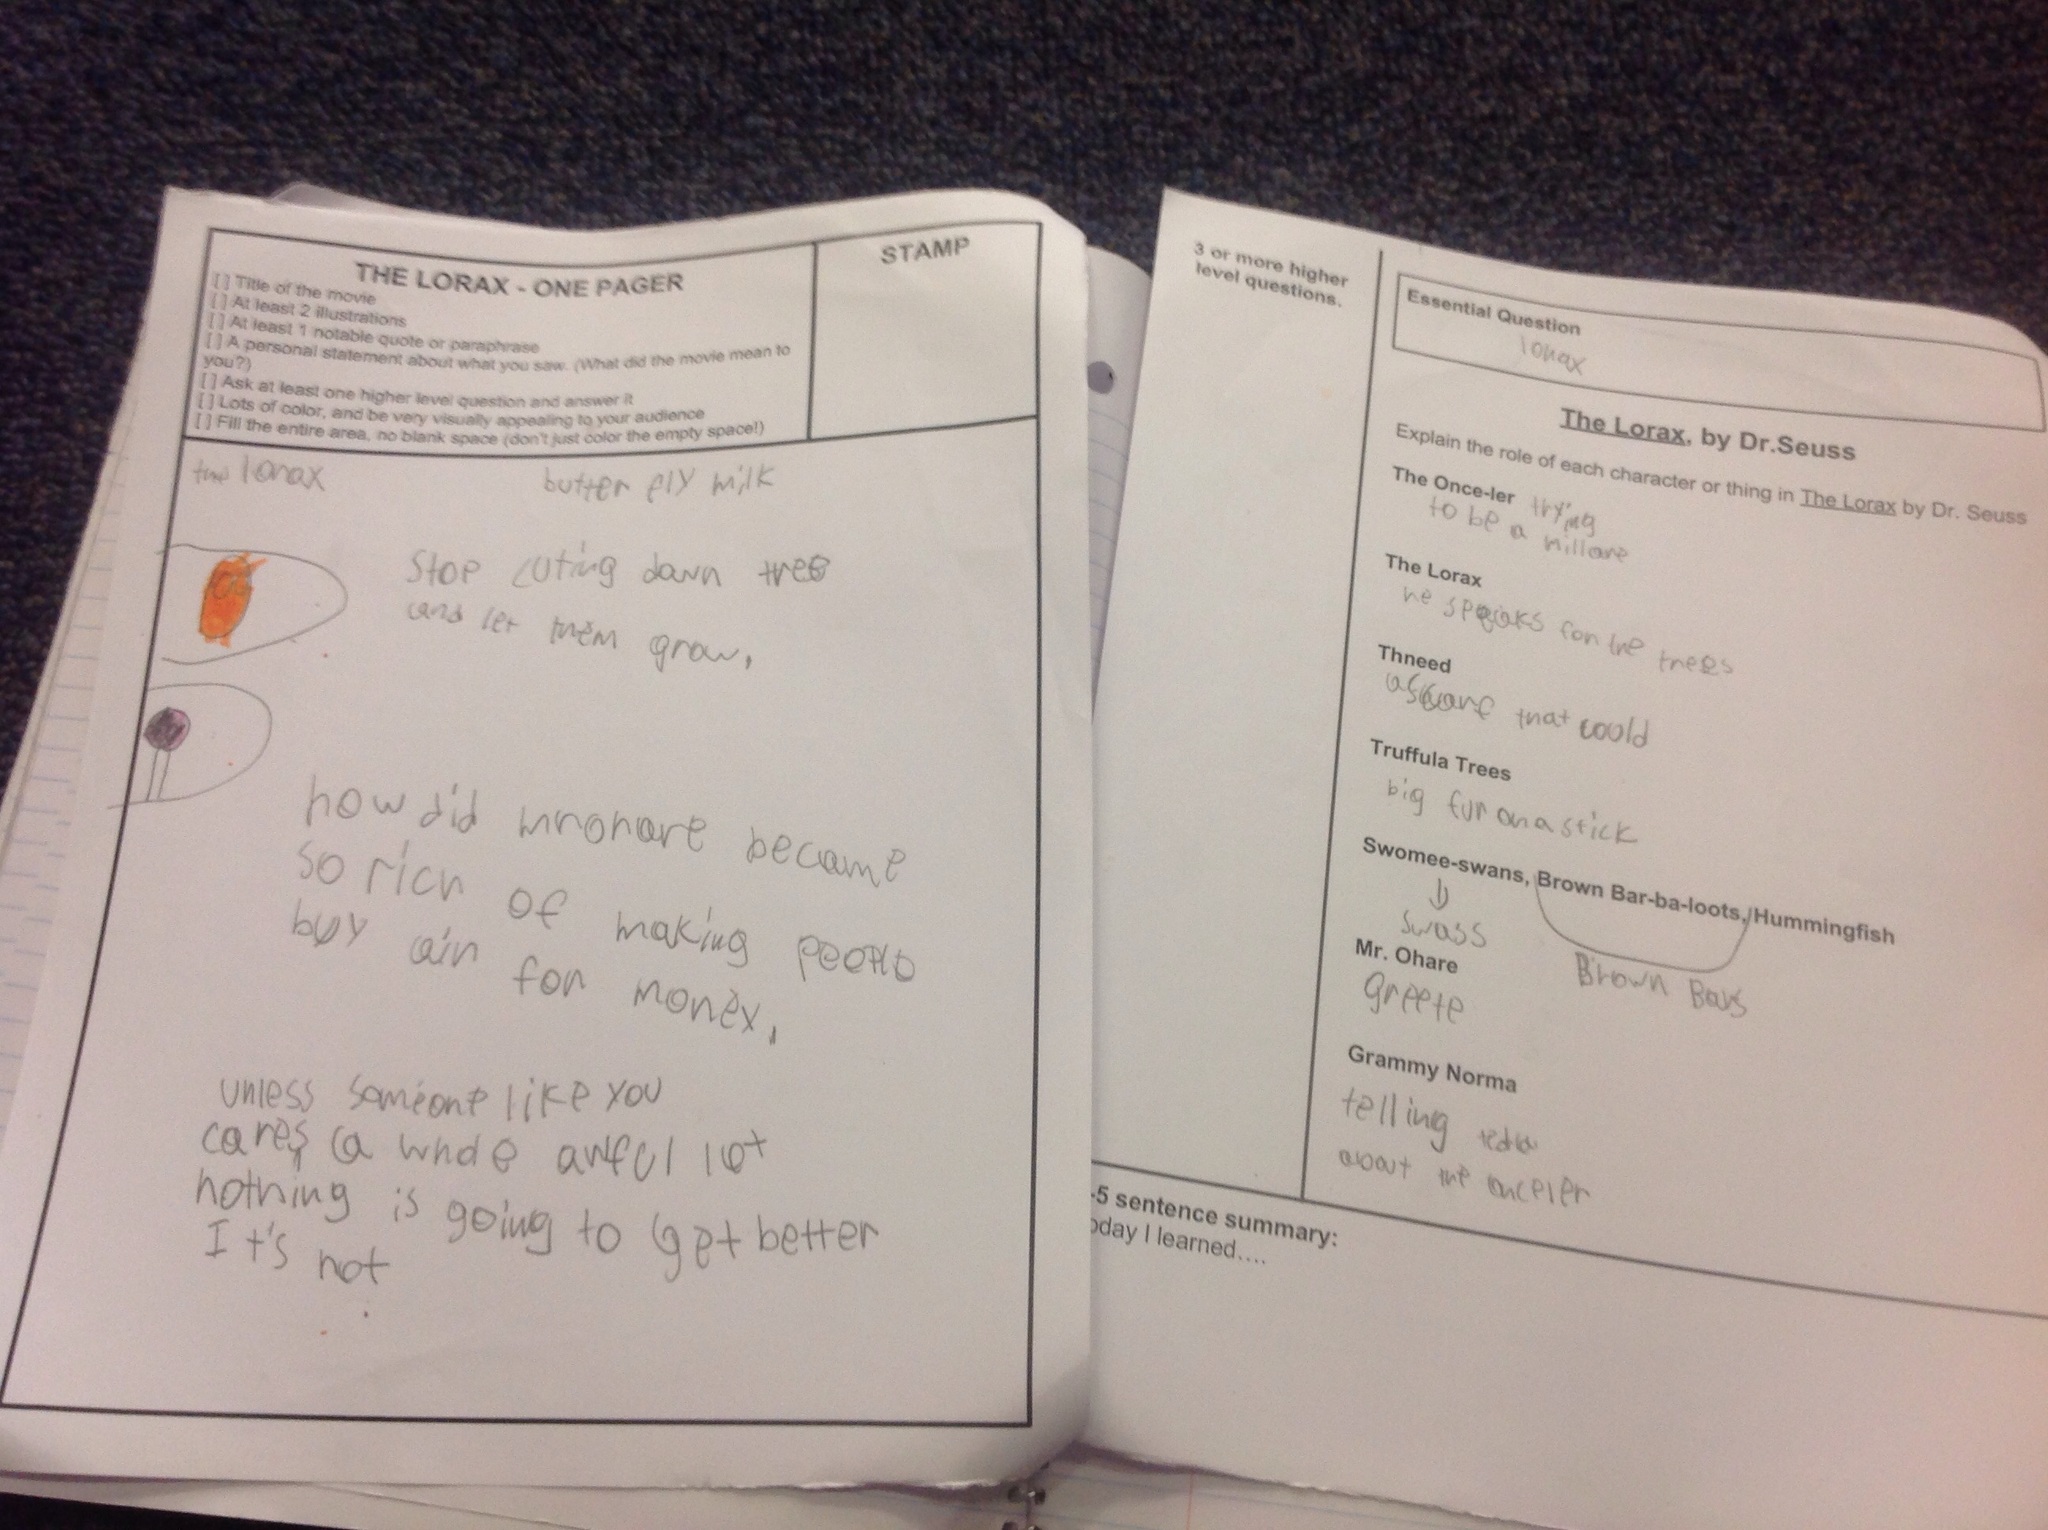 THE LORAX - ONE PAGER
STAMP
[ ] Title of the movie
[ ] At least 2 illustrations
[ ] At least 1 notable quote or paraphrase
[ ] A personal statement about what you saw. (What did the movie mean to
you?)
[ ] Ask at least one higher level question and answer it
[ ] Lots of color, and be very visually appealing to your audience
[ ] Fill the entire area, no blank space (don't just color the empty space!)
the lorax
butter fly milk
Stop cuting down tree
and let them grow.
how did mrohare became
so rich of making people
buy air for money.
unless someone like you
cares a whole awful lot
nothing is going to get better
It's not
3 or more higher
level questions.
Essential Question
lorax
The Lorax, by Dr.Seuss
Explain the role of each character or thing in The Lorax by Dr. Seuss
The Once-ler trying
to be a millare
The Lorax
he speaks for the trees
Thneed
a scarf that could
Truffula Trees
big fur on a stick
Swomee-swans, Brown Bar-ba-loots, Hummingfish
swass
Brown Bars
Mr. Ohare
greete
Grammy Norma
telling
about the onceler
-5 sentence summary:
oday I learned....